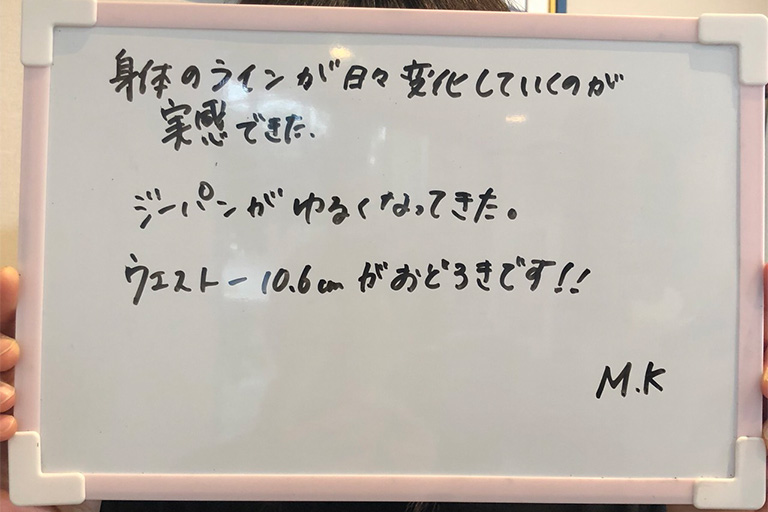 身体のラインが日々変化していくのが
実感できた.
ジーパンがゆるくなってきた。
ウエスト-10.6cmがおどろきです!!
M.K